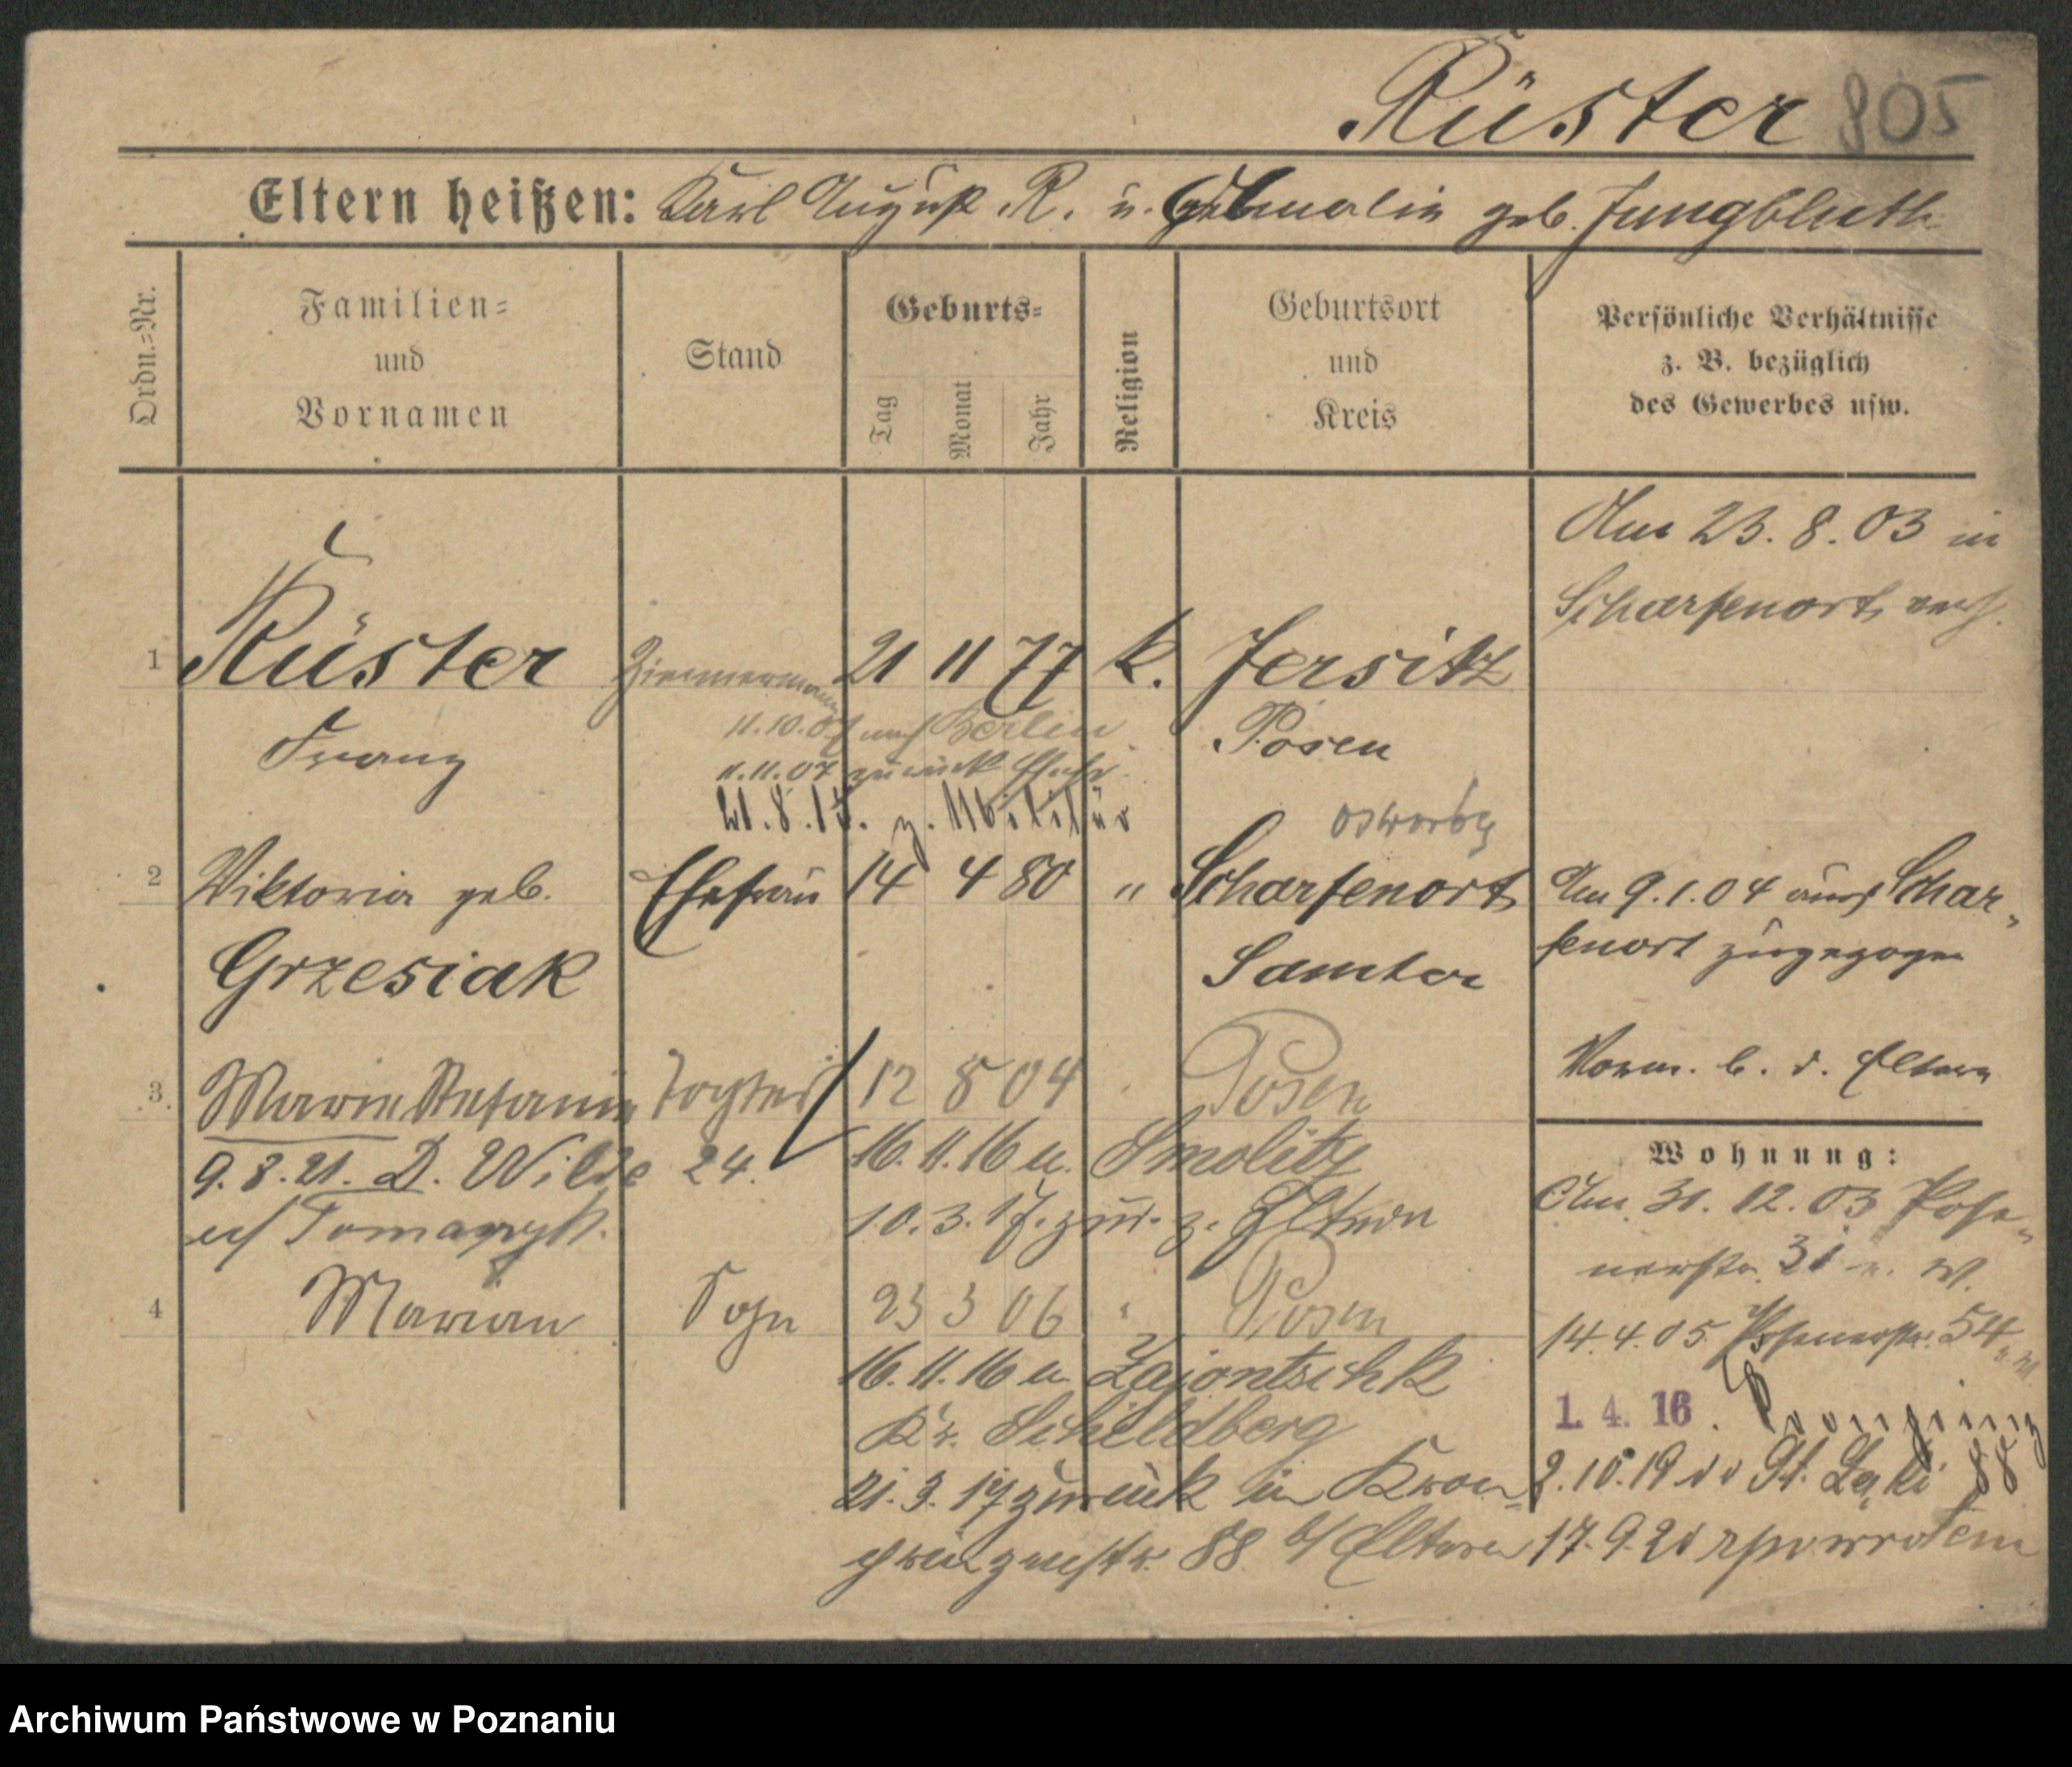 Rüster 805
Eltern heißen: Karl August R. u. Amalie geb. Jungbluth
Ordn.=Nr.
Familien=
und
Vornamen
Stand
Geburts=
Tag
Monat
Jahr
Religion
Geburtsort
und
Kreis
Persönliche Verhältnisse
z. B. bezüglich
des Gewerbes usw.
Am 23.8.03 in
Scharfenort verh.
1 Rüster Zimmermann 21 11 77 k. Jersitz
Franz Posen
11.10.07 nach Berlin
11.11.07 zurück
21.8.15. z. Militär
2 Viktoria geb. Ehefrau 14 4 80 " Scharfenort
Grzesiak Samter
Am 9.1.04 aus Schar=
fenort zugezogen
Vorm. b. d. Eltern
3. Marie Stefanie Tochter 12 8 04 Posen
9.8.21. D. Wilde 24. 16.11.16 n. Smolitz
10.3.17. zur. z. Eltern
4 Marian Sohn 23 3 06 " Posen
16.11.16 n
Kr. Schildberg
21.3.17 zurück in Kron=
prinzenstr. 88 b/ Eltern
Wohnung:
Am 31.12.03 Pose=
nerstr. 31
14.4.05 Posenerstr. 54
1. 4. 16.
2.10.19 88
17.9.20 z powrotem
Archiwum Państwowe w Poznaniu